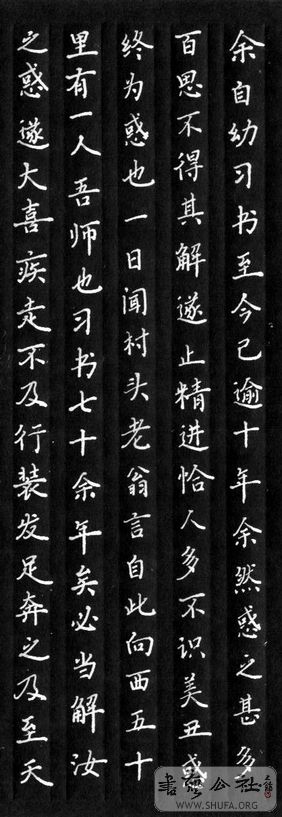 余自幼习书至今已逾十年余然惑之甚多
百思不得其解遂止精进恰人多不识美丑惑
终为惑也一日闻村头老翁言自此向西五十
里有一人吾师也习书七十余年矣必当解汝
之惑遂大喜疾走不及行装发足奔之及至天
書藝公社
WWW.SHUFA.ORG